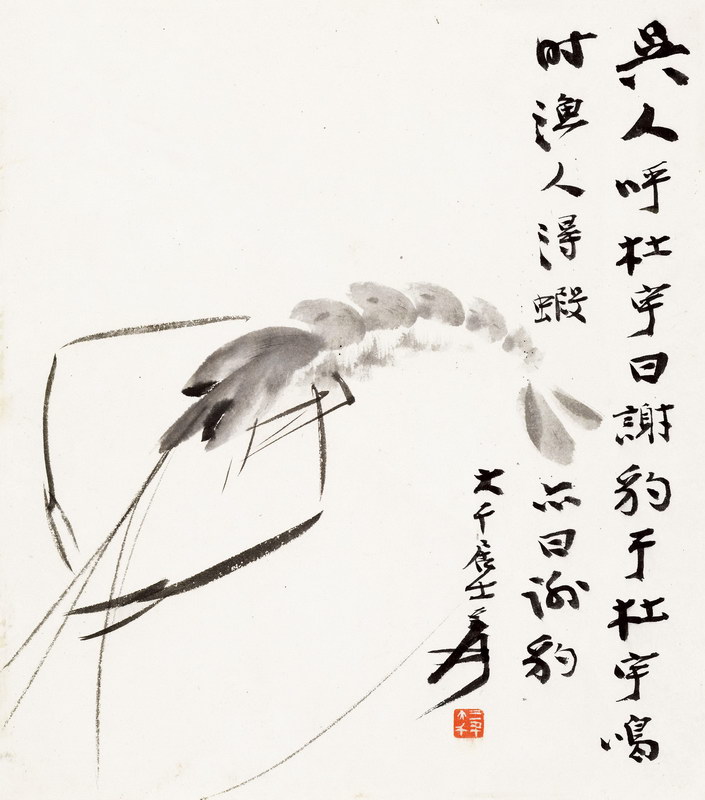 吳人呼杜宇曰謝豹于杜宇鳴
时漁人得蝦亦曰謝豹
大千居士爰
三千大千